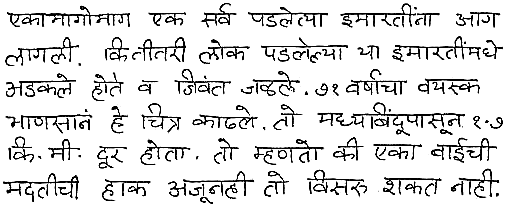 एकामागोमाग एक सर्व पडलेल्या इमारतींना आग
लागली. कितीतरी लोक पडलेल्या या इमारतींमधे
अडकले होते व जिवंत जळले. ७१ वर्षाचा वयस्क
माणसानं हे चित्र काढले. तो मध्यबिंदूपासून १.७
कि.मी. दूर होता. तो म्हणतो की एका बाईची
मदतीची हाक अजूनही तो विसरु शकत नाही.